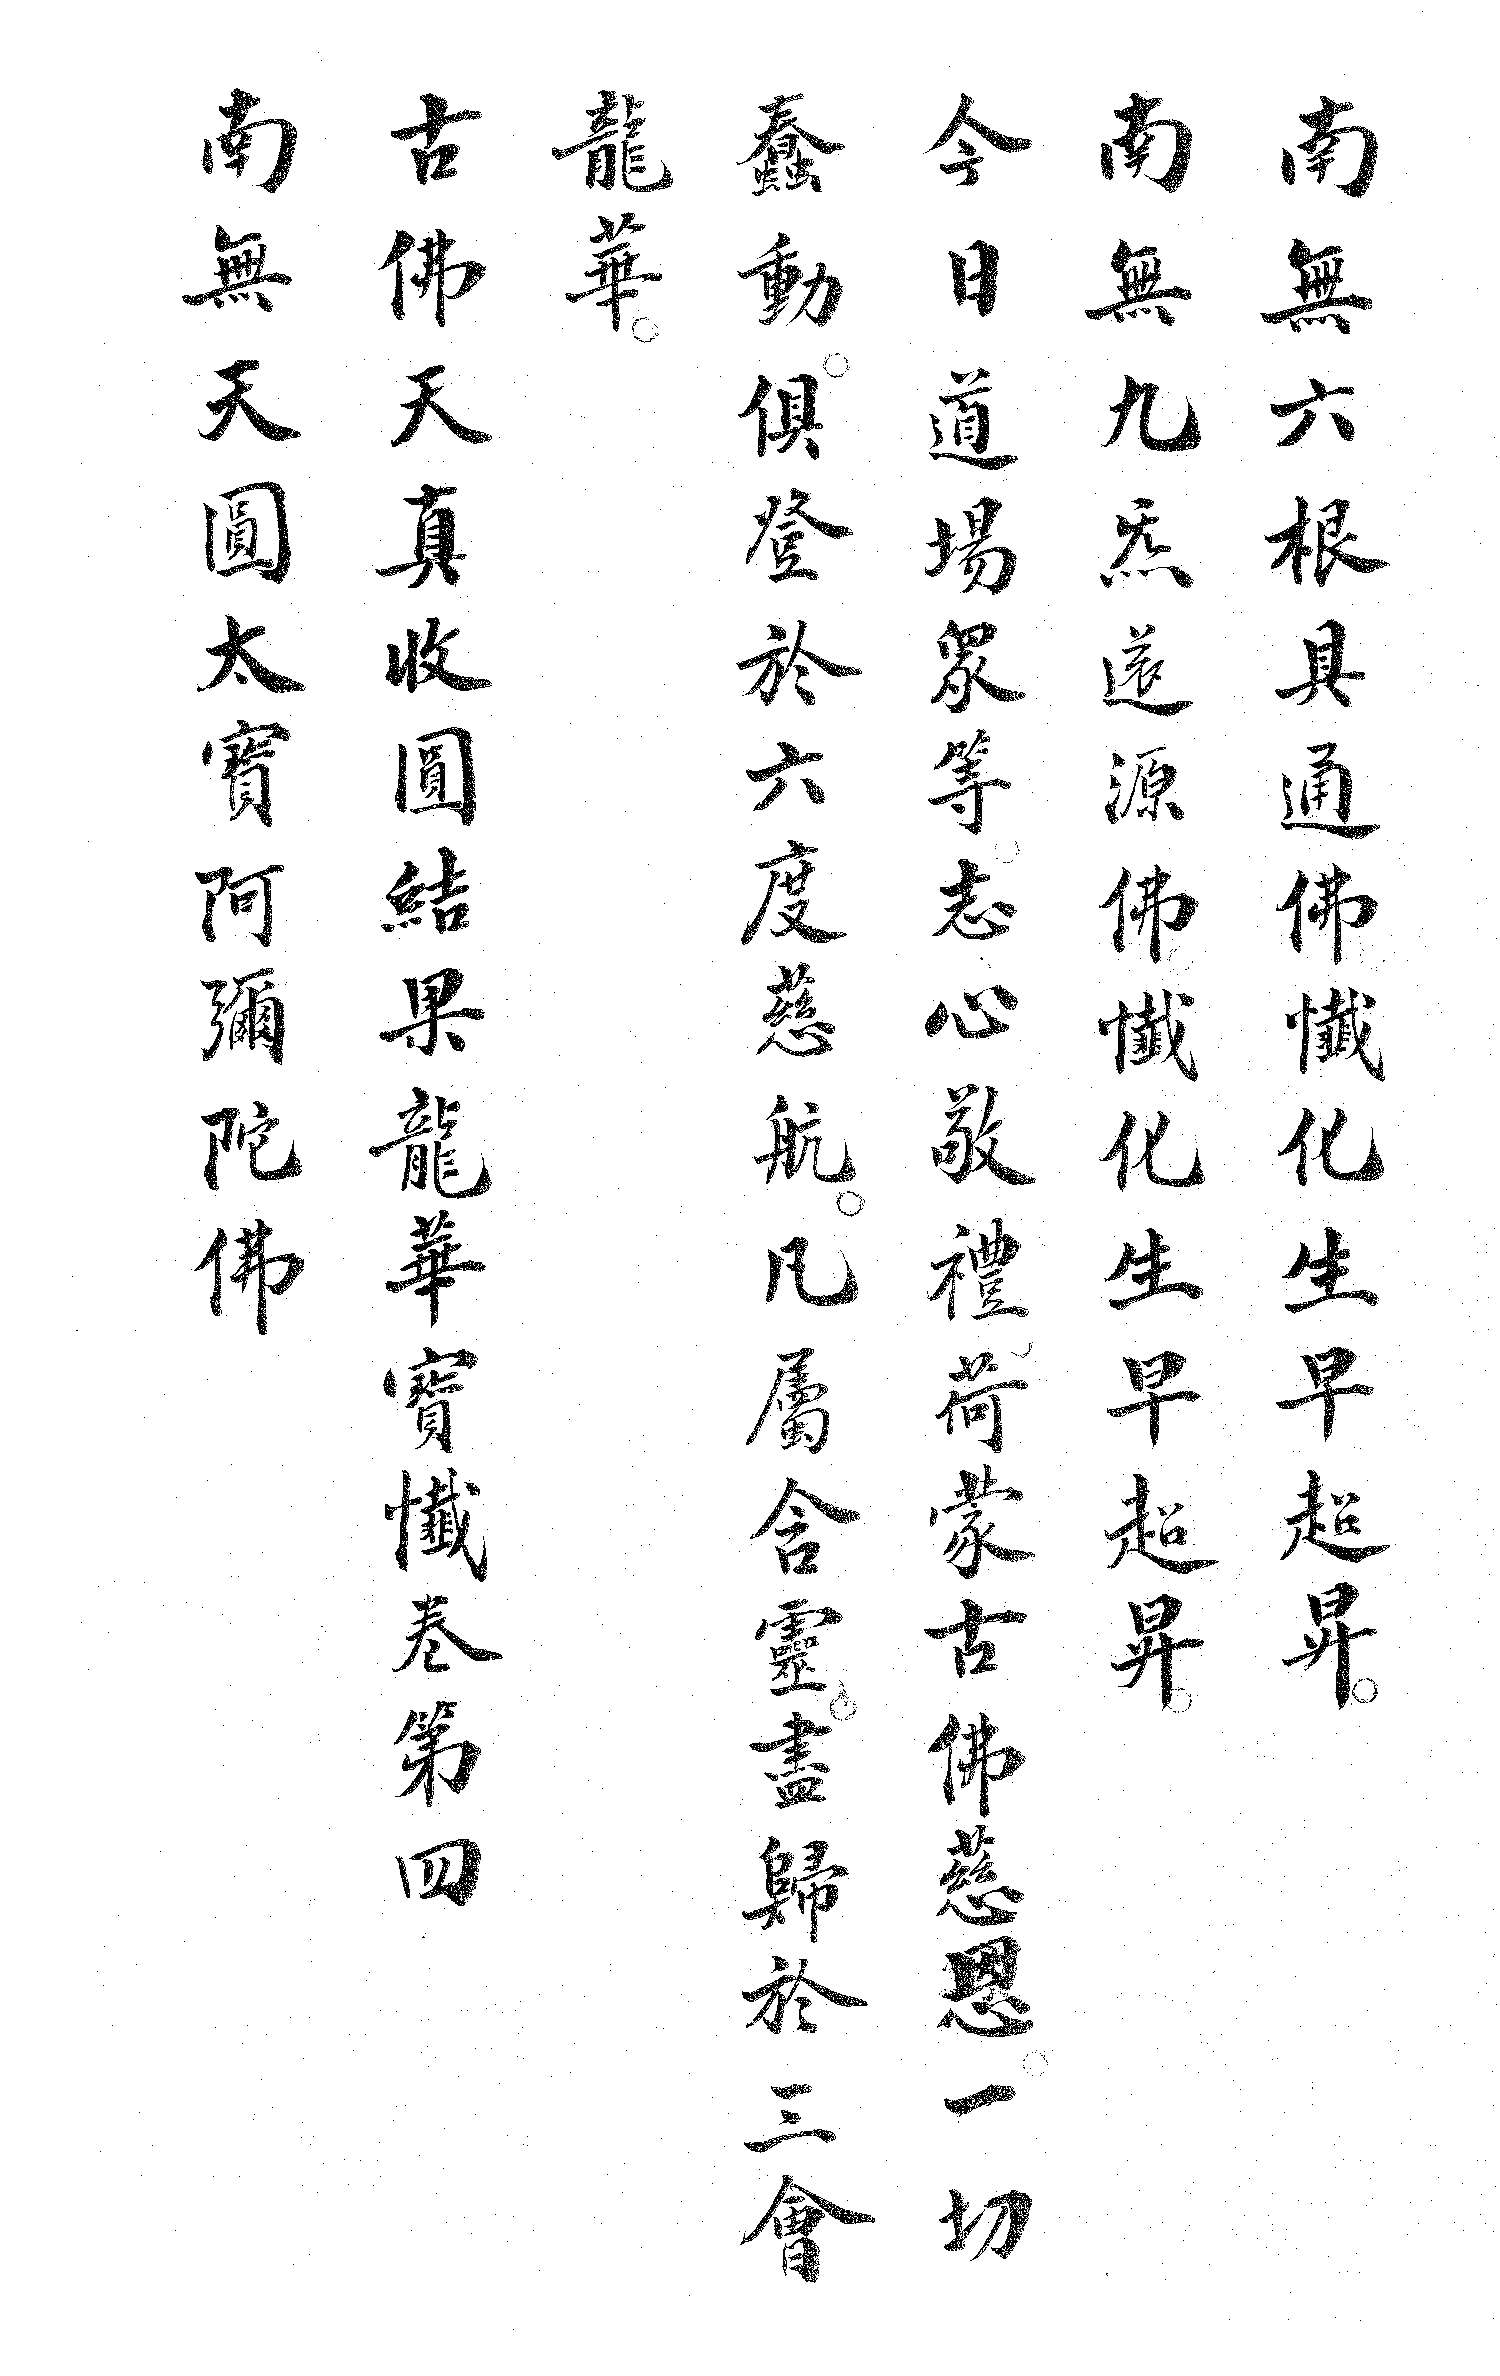 南無六根具通佛懺化生早超昇。
南無九炁還源佛懺化生早超昇。
今日道場眾等。志心敬禮。荷蒙古佛慈恩。一切
蠢動。俱登於六度慈航。凡屬含靈。盡歸於三會
龍華。
古佛天真收圓結果龍華寶懺卷第四
南無天圓太寶阿彌陀佛